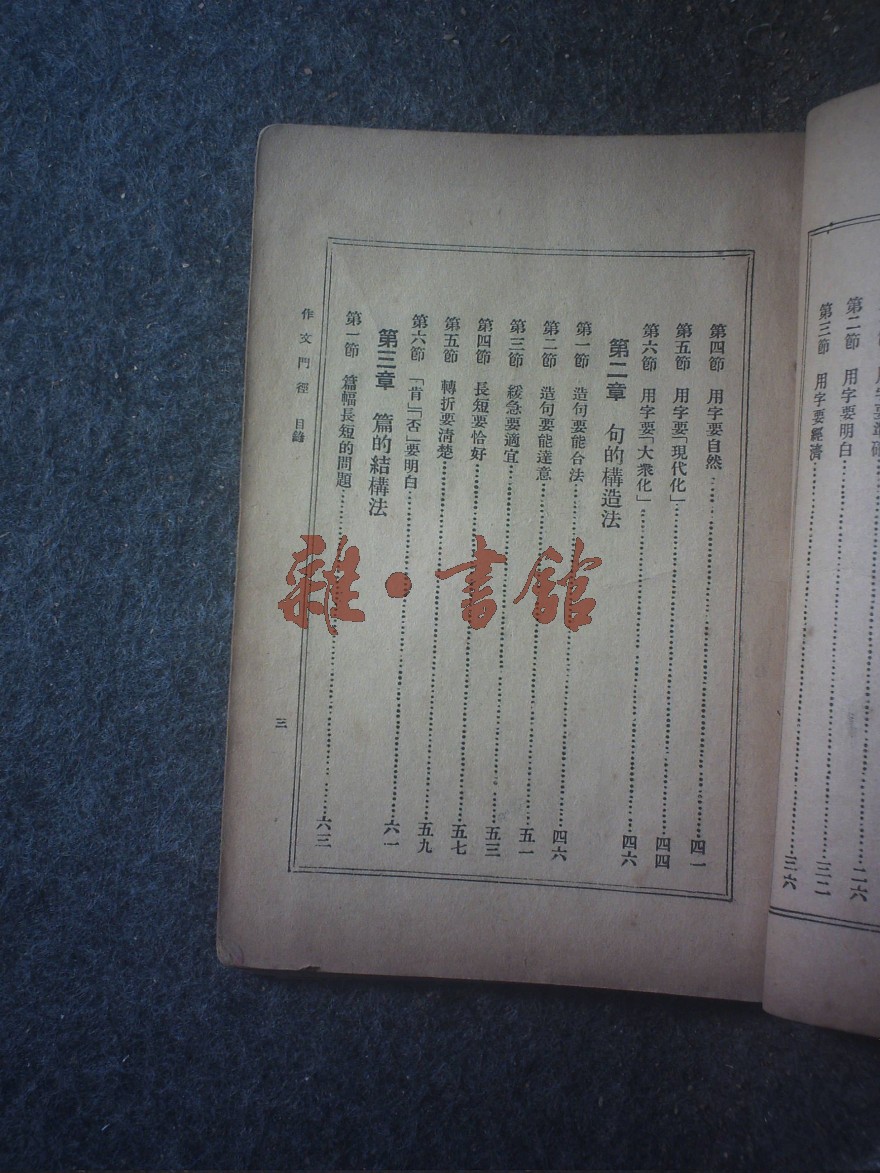 用字要……二六
第二節 用字要明白……三二
第三節 用字要經濟……三六
第四節 用字要自然……四一
第五節 用字要「現代化」……四四
第六節 用字要「大衆化」……四六
第二章 句的構造法
第一節 造句要能合法……四六
第二節 造句要能達意……五一
第三節 緩急要適宜……五三
第四節 長短要恰好……五七
第五節 轉折要淸楚……五九
第六節 「肯」「否」要明白……六一
第三章 篇的結構法
第一節 篇幅長短的問題……六三
作文門徑 目錄 三
雜·書館